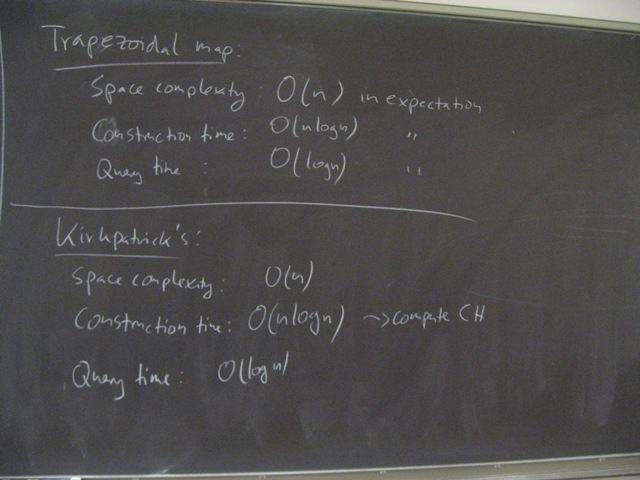 Trapezoidal map:
Space complexity : O(n) in expectation
Construction time: O(nlogn) "
Query time : O(logn) "
Kirkpatrick's:
Space complexity: O(n)
Construction time: O(nlogn) → compute CH
Query time: O(logn)